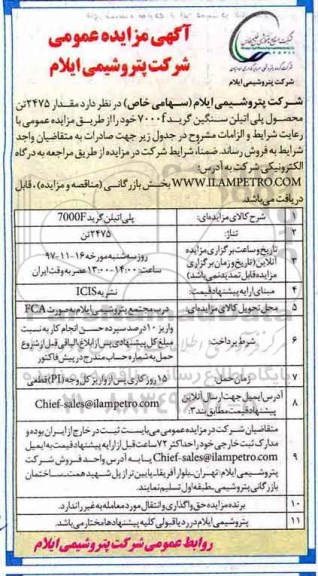 آگهی مزایده عمومی
شرکت پتروشیمی ایلام
شرکت پتروشیمی ایلام
شرکت پتروشیمی ایلام (سهامی خاص) در نظر دارد مقدار ۲۴۷۵تن
محصول پلی اتیلن سنگین گرید ۷۰۰۰f خود را از طریق مزایده عمومی با
رعایت شرایط و الزامات مشروح در جدول زیر جهت صادرات به متقاضیان واجد
شرایط به فروش رساند. ضمنا، شرایط شرکت در مزایده از طریق مراجعه به درگاه
الکترونیکی شرکت به آدرس:
WWW.ILAMPETRO.COM بخش بازرگانی (مناقصه و مزایده)، قابل
دریافت می‌باشد.
۱ شرح کالای مزایده‌ای: پلی اتیلن گرید 7000F
۲ تناژ: ۲۴۷۵تن
۳ تاریخ و ساعت برگزاری مزایده آنلاین (تاریخ و زمان برگزاری مزایده قابل تمدید نمی‌باشد) روز سه‌شنبه مورخه ۱۶-۱۱-۹۷ ساعت: ۱۴:۰۰-۱۳:۰۰ عصر به وقت ایران
۴ مبنای ارایه پیشنهاد قیمت: نشریه ICIS
۵ محل تحویل کالای مزایده‌ای: درب مجتمع پتروشیمی ایلام به صورت FCA
۶ شرط پرداخت: واریز ۱۰ درصد سپرده حسن انجام کار به نسبت مبلغ کل پیشنهادی پس از ابلاغ الباقی قبل از شروع حمل به شماره حساب مندرج در پیش فاکتور
۷ زمان حمل: ۱۵ روز کاری پس از واریز کل وجه (PI) قطعی
۸ آدرس ایمیل جهت ارسال آنلاین پیشنهاد قیمت مطابق بند ۳: Chief-sales@ilampetro.com
۹ متقاضیان شرکت در مزایده عمومی می‌بایست ثبت در خارج از ایران بوده و
مدارک ثبت خارجی خود را حداکثر ۷۲ ساعت قبل از ارایه پیشنهاد قیمت به ایمیل
Chief-sales@ilampetro.com یا به آدرس واحد فروش شرکت
پتروشیمی ایلام: تهران- بلوار آفریقا- پایین‌تر از پل شهید همت- ساختمان
بازرگانی پتروشیمی- طبقه اول تسلیم نمایند.
۱۰ برنده مزایده حق واگذاری و انتقال مورد معامله به غیر را ندارد.
۱۱ پتروشیمی ایلام در رد یا قبولی کلیه پیشنهادها مختار می‌باشد.
روابط عمومی شرکت پتروشیمی ایلام